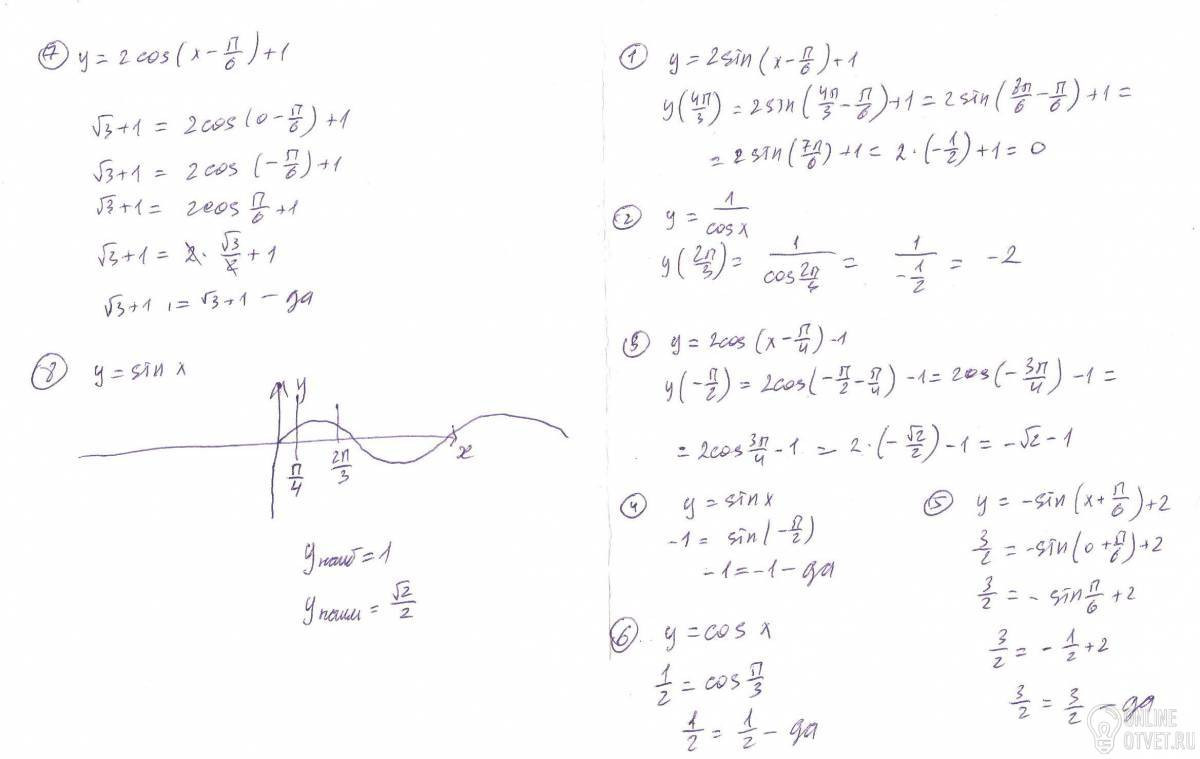 ⑦ y = 2cos(x - π/6) + 1
√3+1 = 2cos(0 - π/6) + 1
√3+1 = 2cos(-π/6) + 1
√3+1 = 2cos π/6 + 1
√3+1 = 2 · √3/2 + 1
√3+1 = √3+1 – да
⑧ y = sin x
y
π/4
2π/3
x
y наиб = 1
y наим = √2/2
① y = 2sin(x - π/6) + 1
y(4π/3) = 2sin(4π/3 - π/6) + 1 = 2sin(8π/6 - π/6) + 1 =
= 2sin(7π/6) + 1 = 2 · (-1/2) + 1 = 0
② y = 1/cos x
y(2π/3) = 1/cos 2π/3 = 1/(-1/2) = -2
③ y = 2cos(x - π/4) - 1
y(-π/2) = 2cos(-π/2 - π/4) - 1 = 2cos(-3π/4) - 1 =
= 2cos 3π/4 - 1 = 2 · (-√2/2) - 1 = -√2 - 1
④ y = sin x
-1 = sin(-π/2)
-1 = -1 – да
⑤ y = -sin(x + π/6) + 2
3/2 = -sin(0 + π/6) + 2
3/2 = - sin π/6 + 2
3/2 = - 1/2 + 2
3/2 = 3/2 – да
⑥ y = cos x
1/2 = cos π/3
1/2 = 1/2 – да
ONLINE
OTVET.RU